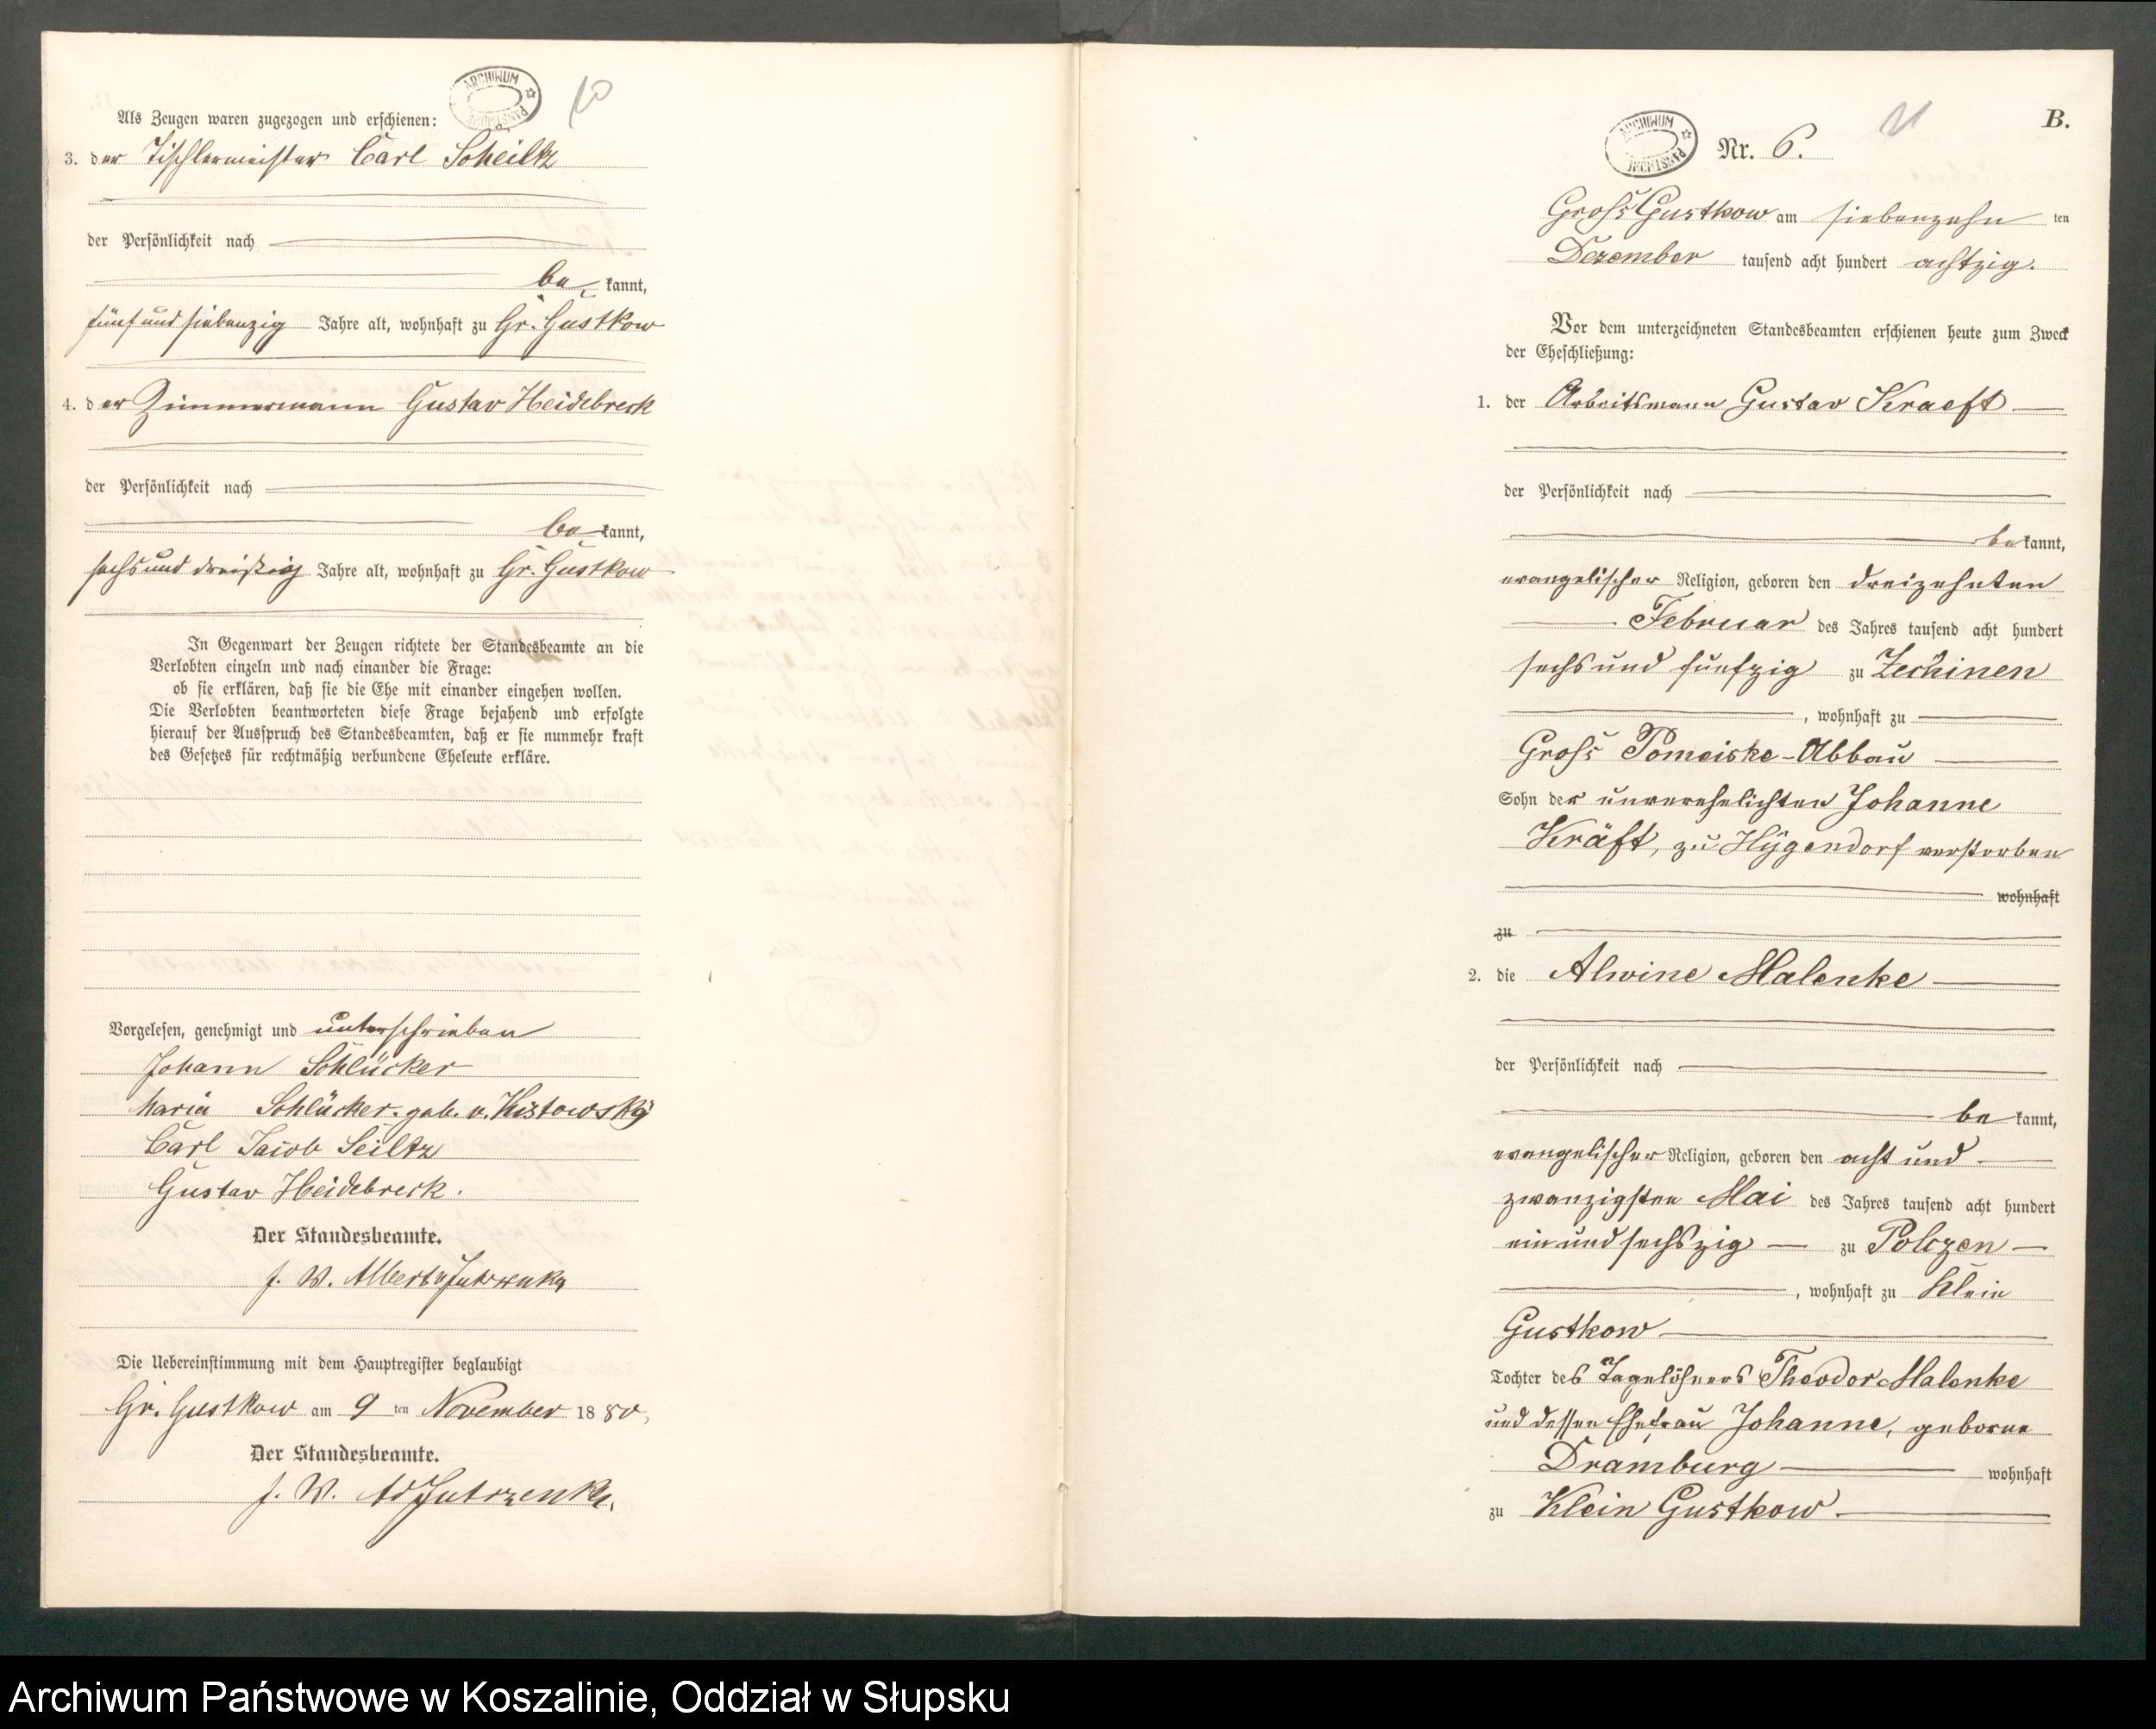 Als Zeugen waren zugezogen und erschienen:
3. der Tischlermeister Carl Scheiltz
der Persönlichkeit nach
be kannt,
fünf und siebenzig Jahre alt, wohnhaft zu Gr. Gustkow
4. der Zimmermann Gustav Heidebreck
der Persönlichkeit nach
be kannt,
sechs und dreißig Jahre alt, wohnhaft zu Gr. Gustkow
In Gegenwart der Zeugen richtete der Standesbeamte an die
Verlobten einzeln und nach einander die Frage:
ob sie erklären, daß sie die Ehe mit einander eingehen wollen.
Die Verlobten beantworteten diese Frage bejahend und erfolgte
hierauf der Ausspruch des Standesbeamten, daß er sie nunmehr kraft
des Gesetzes für rechtmäßig verbundene Eheleute erkläre.
Vorgelesen, genehmigt und unterschrieben
Johann Schlücker
Maria Schlücker. geb. v. Kistowsky
Carl Jacob Seiltz
Gustav Heidebreck.
Der Standesbeamte.
Die Uebereinstimmung mit dem Hauptregister beglaubigt
Gr. Gustkow am 9 ten November 18 80,
Der Standesbeamte.
ARCHIWUM PAŃSTWOWE
10
B.
ARCHIWUM PAŃSTWOWE
11
Nr. 6.
Gross Gustkow am siebenzehn ten
Dezember tausend acht hundert achtzig.
Vor dem unterzeichneten Standesbeamten erschienen heute zum Zweck
der Eheschließung:
1. der Arbeitsmann Gustav Kraeft
der Persönlichkeit nach
be kannt,
evangelischer Religion, geboren den dreizehnten
Februar des Jahres tausend acht hundert
sechs und fünfzig zu Zechinen
, wohnhaft zu
Gross Pomeiske-Abbau
Sohn der unverehelichten Johanne
Kräft, zu Hygendorf verstorben
wohnhaft
zu
2. die Alwine Malenke
der Persönlichkeit nach
be kannt,
evangelischer Religion, geboren den acht und
zwanzigsten Mai des Jahres tausend acht hundert
ein und sechszig zu Polczen
, wohnhaft zu Klein
Gustkow
Tochter des Tagelöhners Theodor Malenke
und dessen Ehefrau Johanne, geborne
Dramburg wohnhaft
zu Klein Gustkow.
Archiwum Państwowe w Koszalinie, Oddział w Słupsku